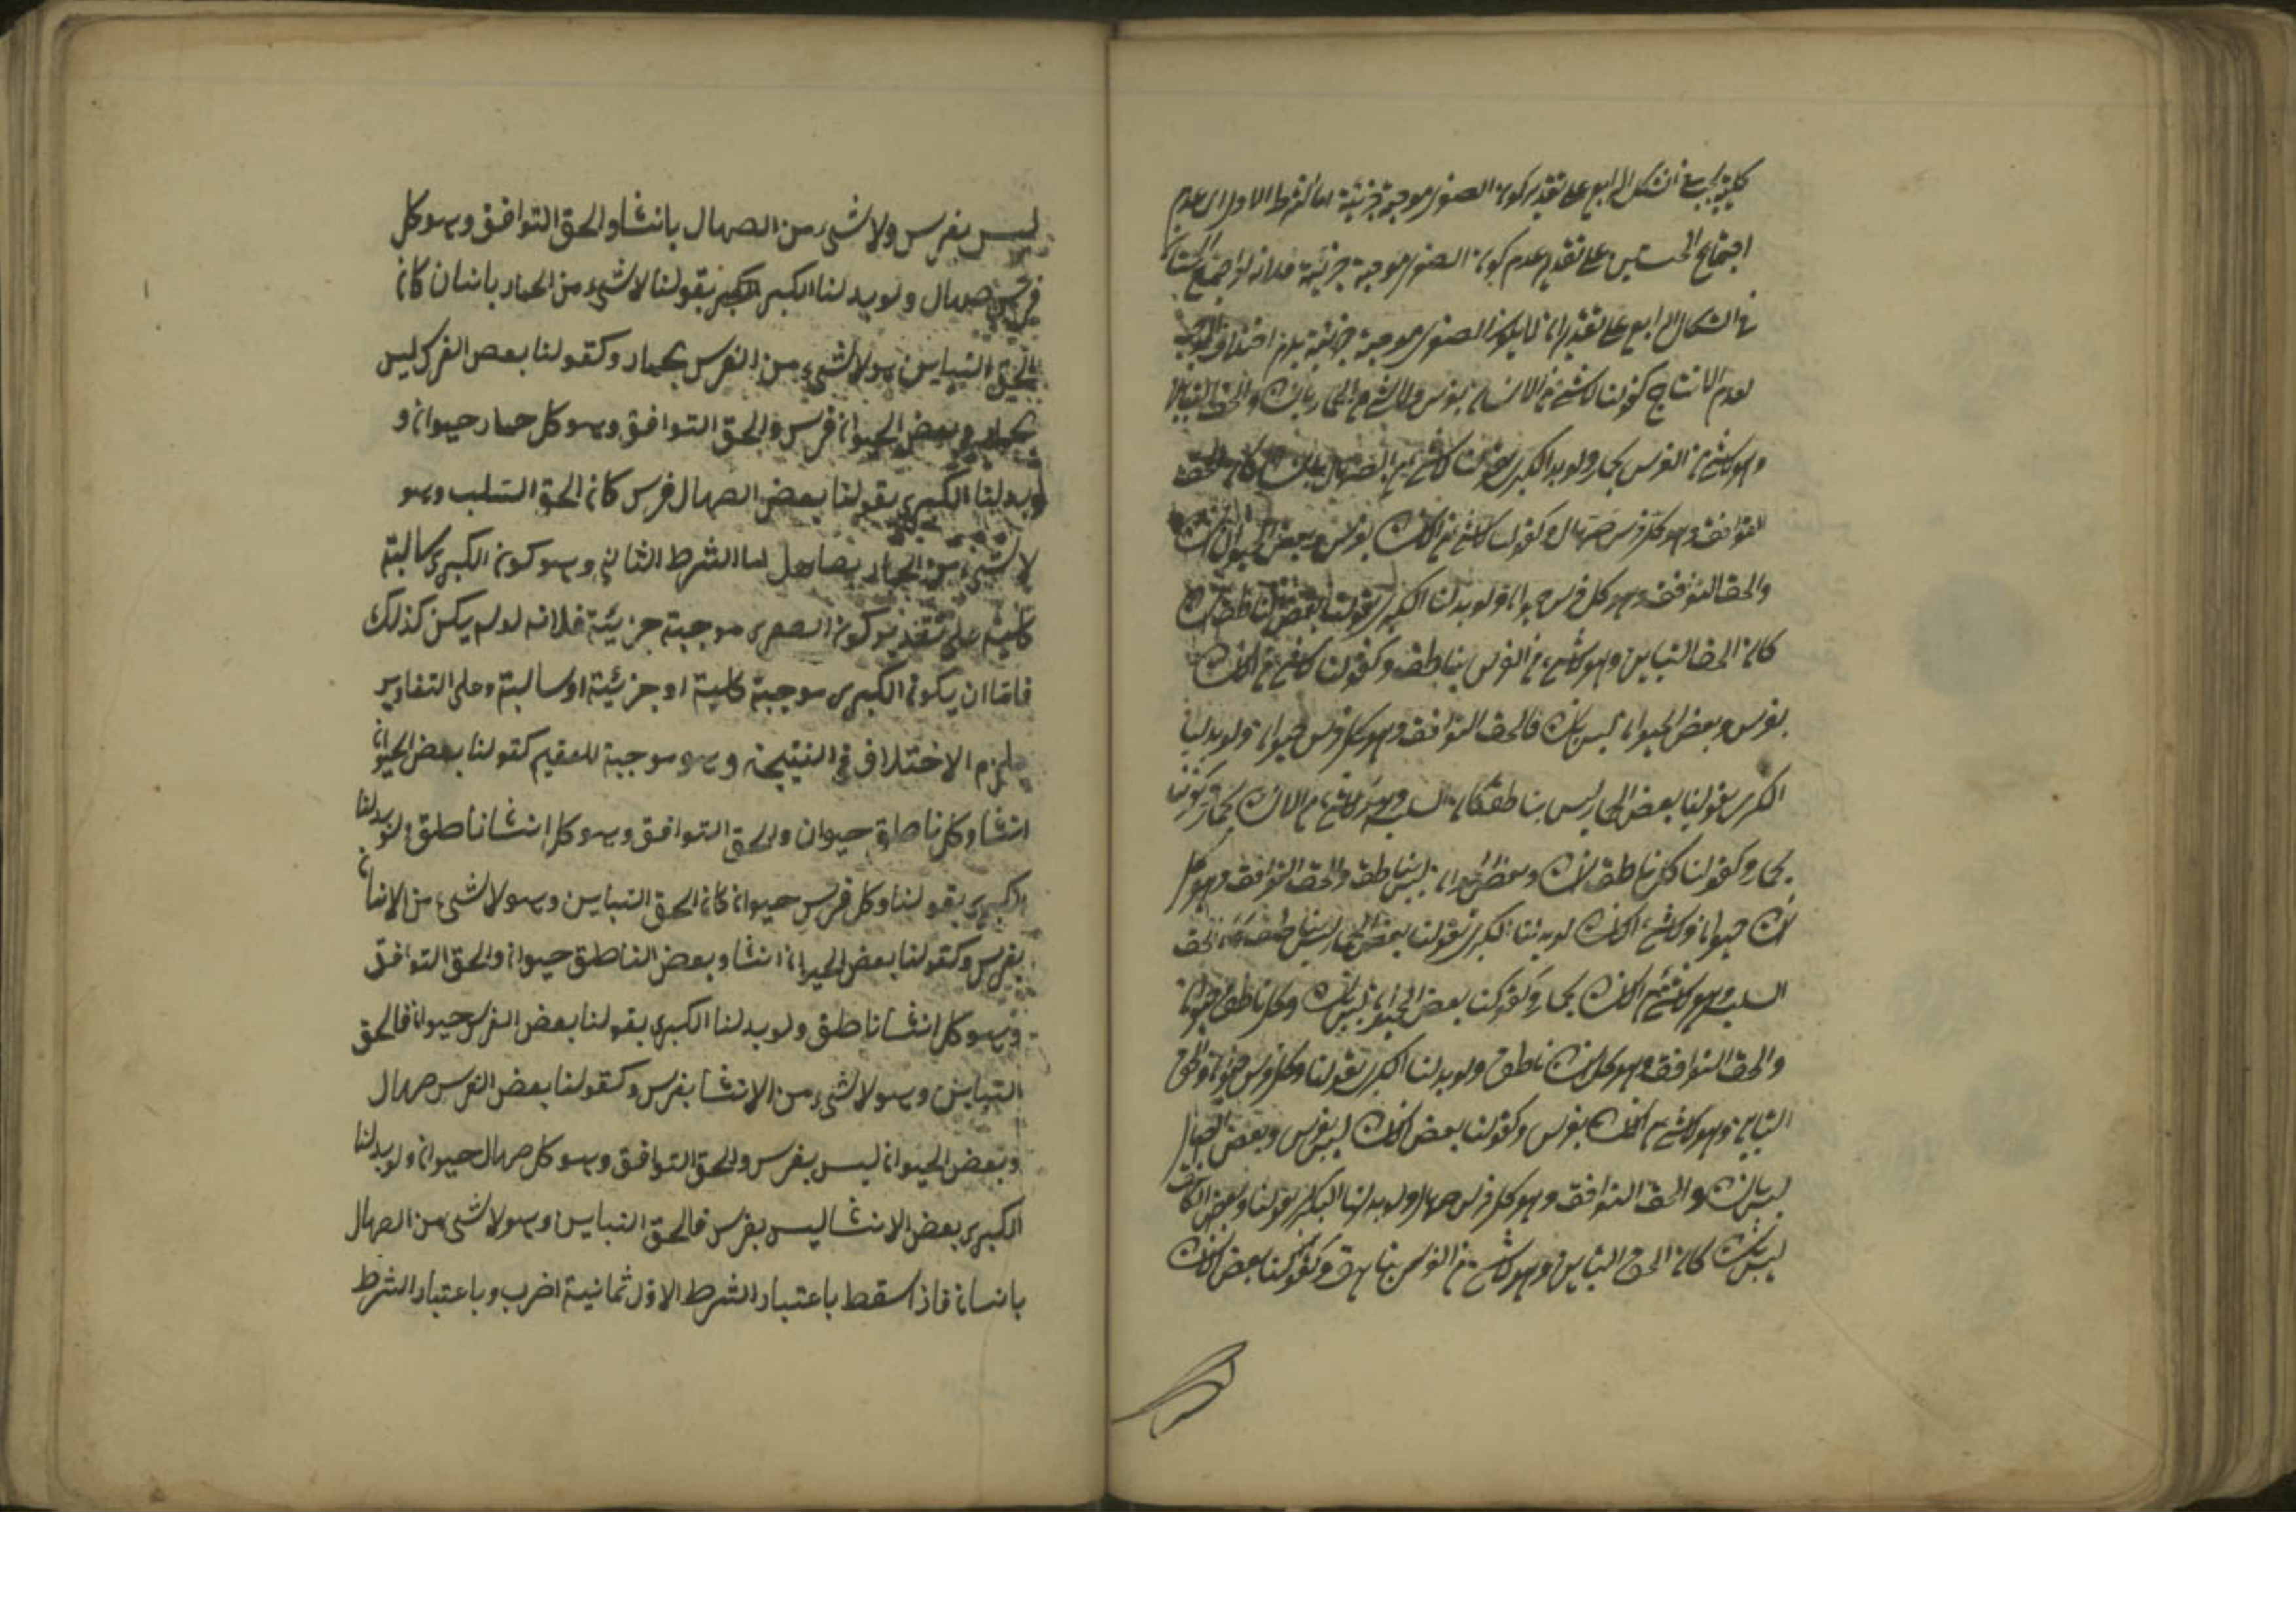 كلية يجب في الشكل الرابع على تقدير كون الصغرى موجبة جزئية اما الشرط الاول اى عدم
اجتماع الخستين على تقدير عدم كون الصغرى موجبة جزئية فلانه لو اجتمع الخستان
في الشكل الرابع على تقدير ان لا يكون الصغرى موجبة جزئية يلزم اختلاف الموجب
لعدم الانتاج كقولنا لا شئ من الانسان بفرس ولا شئ من الحمار بانسان والحق التباين
وهو لا شئ من الفرس بحمار ولو بدلنا الكبرى بقولنا لا شئ من الصهال بانسان كان الحق
التوافق وهو كل فرس صهال وكقولنا لا شئ من الانسان بفرس وبعض الحيوان انسان
والحق التوافق وهو كل فرس حيوان ولو بدلنا الكبرى بقولنا بعض الناطق انسان
كان الحق التباين وهو لا شئ من الفرس بناطق وكقولنا لا شئ من الانسان
بفرس وبعض الحيوان ليس بانسان فالحق التوافق وهو كل فرس حيوان ولو بدلنا
الكبرى بقولنا بعض الحمار ليس بناطق كان السلب وهو لا شئ من الانسان بحمار
بحمار وكقولنا كل ناطق انسان وبعض الحيوان ليس بناطق والحق التوافق وهو كل
انسان حيوان لو بدلنا الكبرى بقولنا بعض الحمار ليس بناطق كان الحق
السلب وهو لا شئ من الانسان بحمار وكقولنا بعض الحيوان ليس بانسان وكل ناطق حيوان
والحق التوافق وهو كل انسان ناطق ولو بدلنا الكبرى بقولنا وكل فرس حيوان والحق
التباين وهو لا شئ من الانسان بفرس وكقولنا بعض الانسان ليس بفرس وبعض الصهال
ليس بانسان والحق التوافق وهو كل فرس صهال ولو بدلنا الكبرى بقولنا وبعض
ليس بانسان كان الحق التباين وهو لا شئ من الفرس وكقولنا بعض الانسان
ليس بفرس ولا شئ من الصهال بانسان والحق التوافق وهو كل
فرس صهال ولو بدلنا الكبرى بقولنا لا شئ من الحمار بانسان كان
الحق التباين وهو لا شئ من الفرس بحمار وكقولنا بعض الفرس ليس
بحمار وبعض الحيوان فرس والحق التوافق وهو كل حمار حيوان و
لو بدلنا الكبرى بقولنا بعض الصهال فرس كان الحق السلب وهو
لا شئ من الحمار بصاهل اما الشرط الثانى وهو كون الكبرى سالبة
كلية على تقدير كون الصغرى موجبة جزئية فلانه لو لم يكن كذلك
فاما ان يكون الكبرى موجبة كلية او جزئية او سالبة وعلى التقادير
يلزم الاختلاف في النتيجة وهو موجبة للعقيم كقولنا بعض الحيوان
انسان وكل ناطق حيوان والحق التوافق وهو كل انسان ناطق ولو بدلنا
الكبرى بقولنا وكل فرس حيوان كان الحق التباين وهو لا شئ من الانسان
بفرس وكقولنا بعض الحيوان انسان وبعض الناطق حيوان والحق التوافق
وهو كل انسان ناطق ولو بدلنا الكبرى بقولنا بعض الفرس حيوان فالحق
التباين وهو لا شئ من الانسان بفرس وكقولنا بعض الفرس صهال
وبعض الحيوان ليس بفرس والحق التوافق وهو كل صهال حيوان ولو بدلنا
الكبرى بعض الانسان ليس بفرس فالحق التباين وهو لا شئ من الصهال
بانسان فاذا سقط باعتبار الشرط الاول ثمانية اضرب وباعتبار الشرط